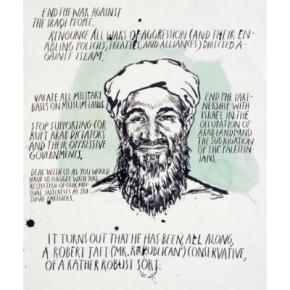 END THE WAR AGAINST
THE IRAQI PEOPLE.
RENOUNCE ALL WARS OF AGGRESSION (AND THEIR EN-
ABLING POLICIES, TREATIES, AND ALLIANCES) DIRECTED A-
GAINST ISLAM.
VACATE ALL MILITARY
BASES ON MUSLIM LANDS.
STOP SUPPORTING COR-
RUPT ARAB DICTATORS
AND THEIR OPPRESSIVE
GOVERNMENTS.
DEAL WITH US AS YOU WOULD
HAVE US
RESPECTFUL OF OUR MU-
TUAL INTERESTS AS
PARTNERS.
END THE PART-
NERSHIP WITH
ISRAEL IN THE
OCCUPATION OF
ARAB LANDS AND
THE SUBJUGATION
OF THE PALESTIN-
IANS.
IT TURNS OUT THAT HE HAS BEEN, ALL ALONG,
A ROBERT TAFT ("MR. REPUBLICAN") CONSERVATIVE,
OF A RATHER ROBUST SORT.